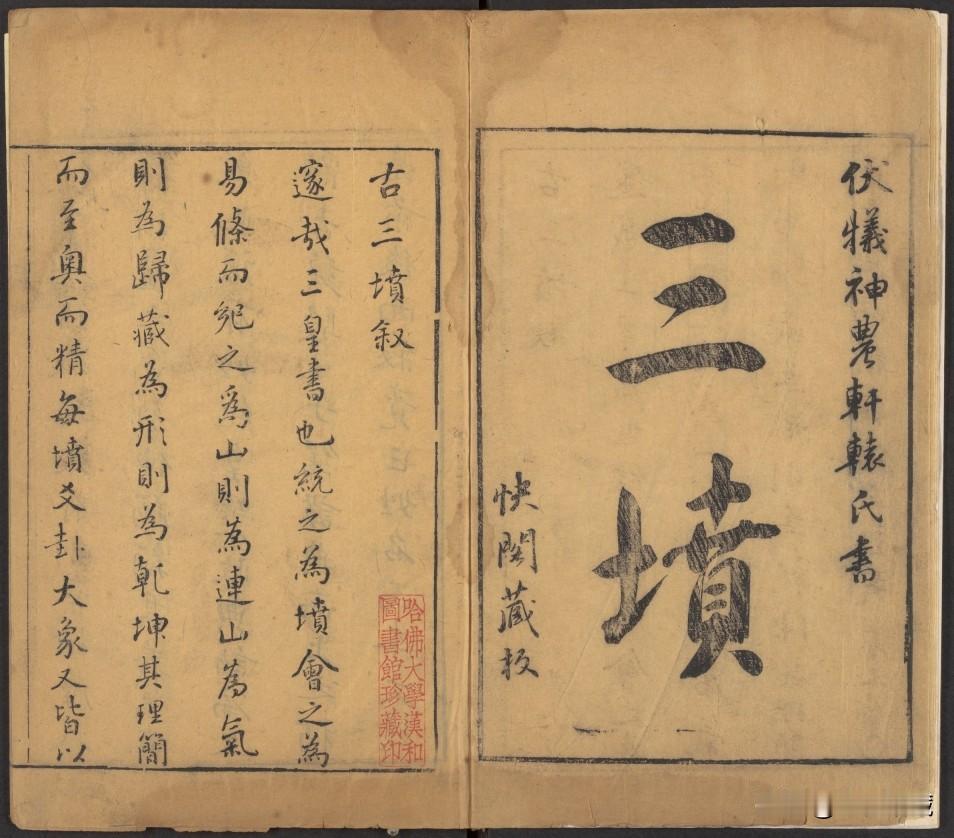 伏犧神農軒轅氏書
三墳
快閣藏板
古三墳叙
邃哉三皇書也統之為墳會之為
易條而𥿄之爲山則為連山為氣
則為歸藏為形則為乹坤其理簡
而至奥而精每墳爻卦大象又皆以
哈佛大學漢和
圖書館珍藏印